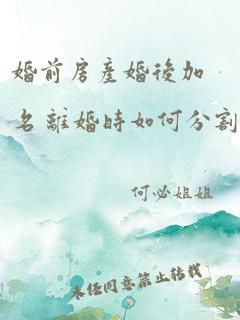 婚前房產婚後加
名離婚時如何分割
何必姐姐
未經同意禁止轉載